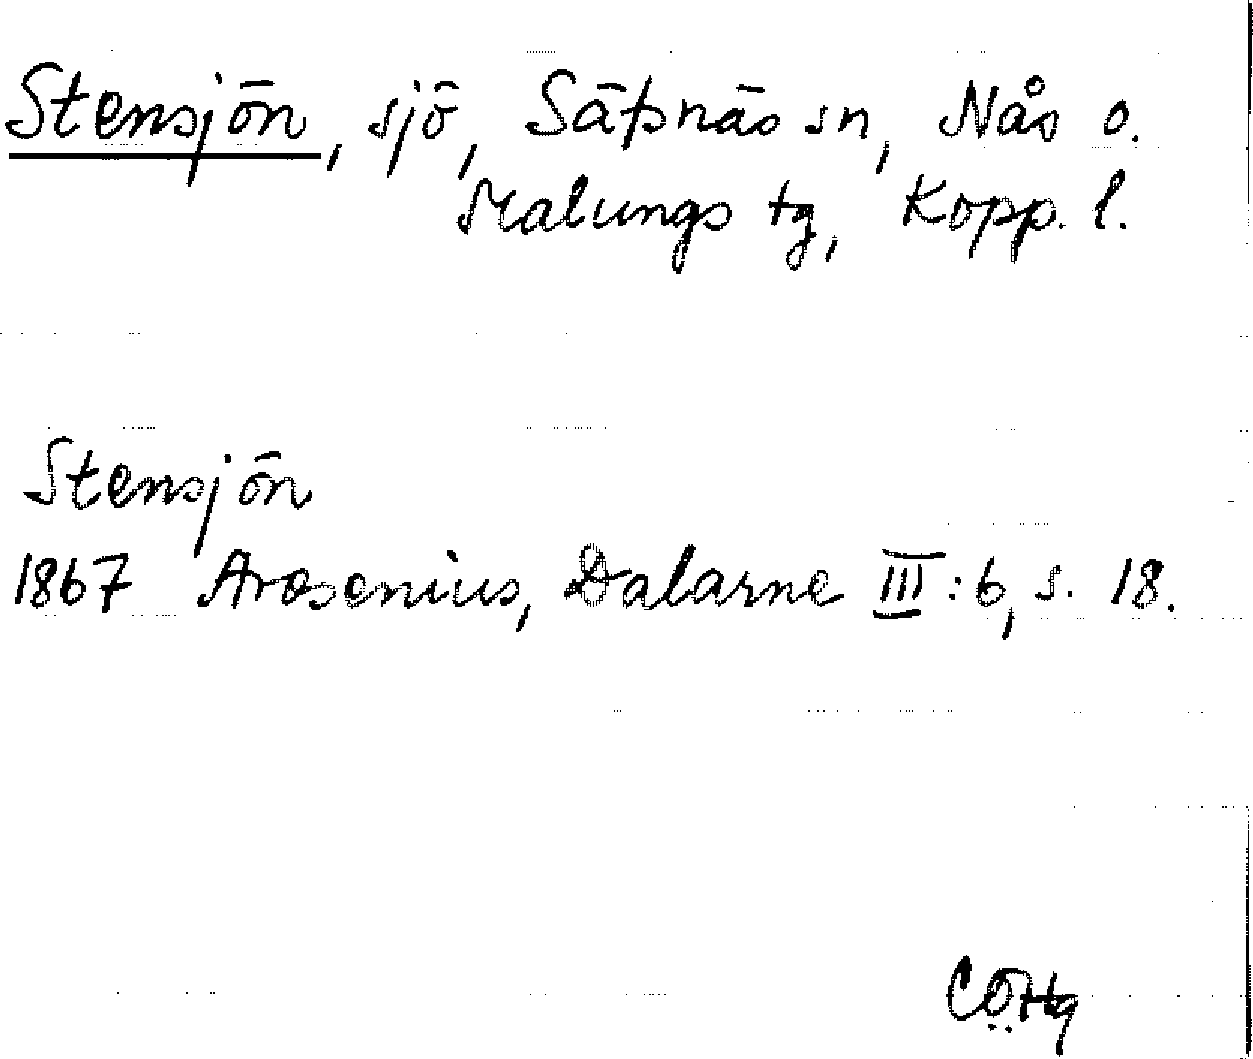 Stensjön, sjö, Säfsnäs sn, Nås o.
Malungs tg, Kopp. l.
Stensjön
1867 Arosenius, Dalarne III:6, s. 18.